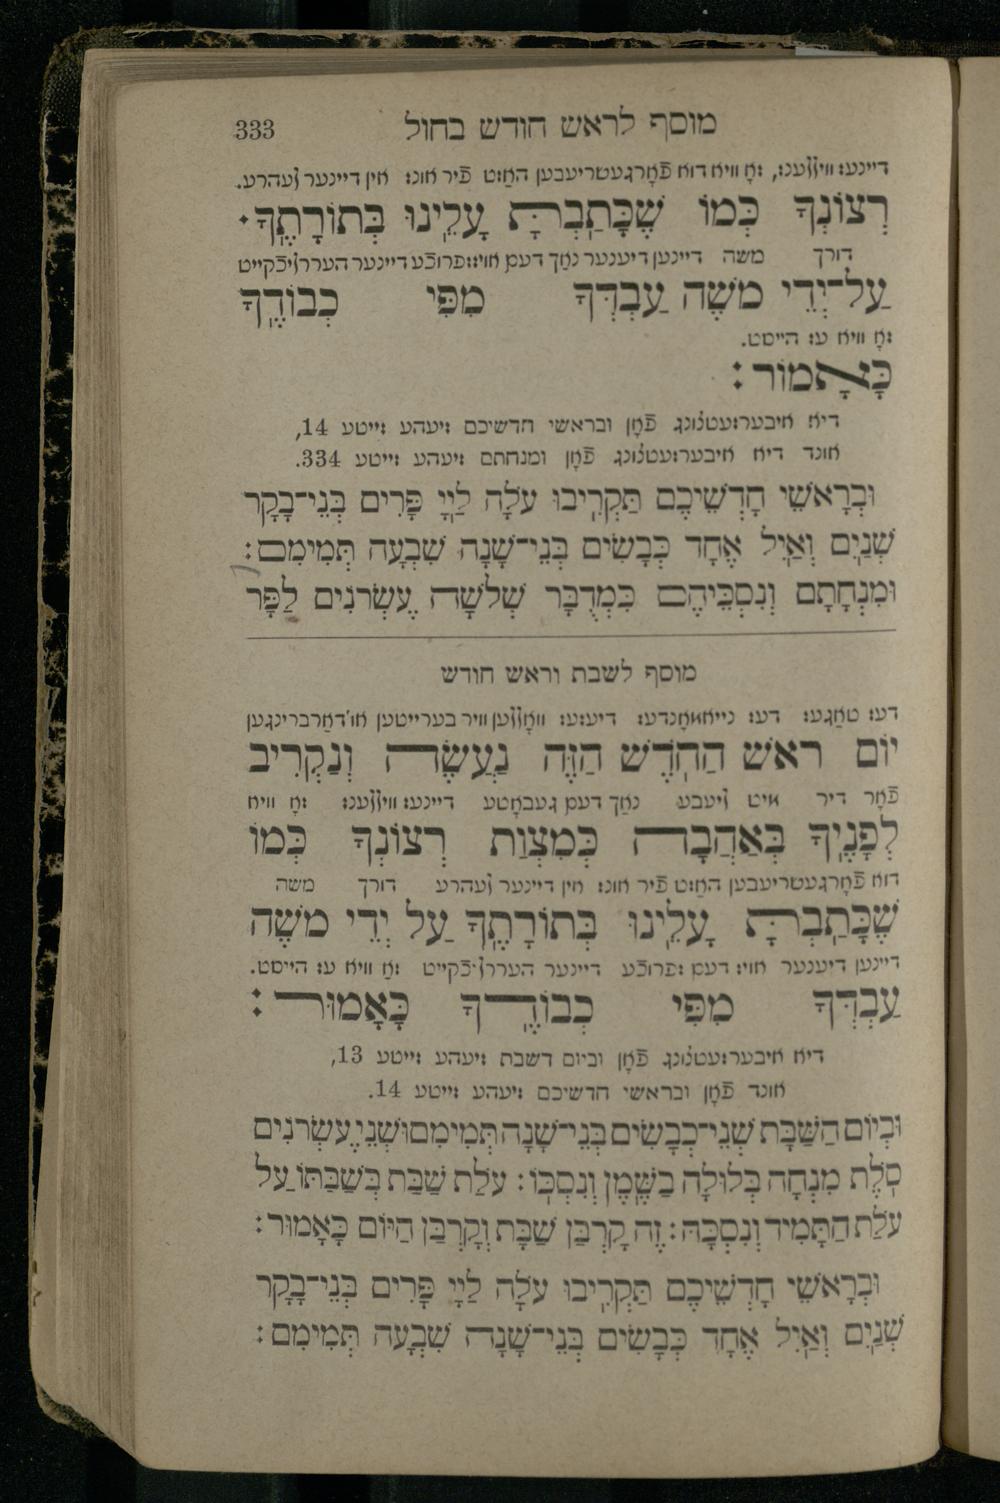 מוסף לראש חודש בחול 333
דיינעס וויללענס, זאָ וויא דוא פֿאָרגעשריעבען האַסט פֿיר אונז אין דיינער לעהרע.
רְצוֹנְךָ כְּמוֹ שֶׁכָּתַבְתָּ עָלֵינוּ בְּתוֹרָתֶךָ.
דורך משה דיינען דיענער נאָך דעם אויזשפרוכֿע דיינער העררליכֿקייט
עַל־יְדֵי מֹשֶׁה עַבְדְּךָ מִפִּי כְבוֹדֶךָ
זאָ וויא עס הייסט.
כָּאָמוּר:
דיא איבערזעטצונג פֿאָן ובראשי חדשיכם זיעהע זייטע 14,
אונד דיא איבערזעטצונג פֿאָן ומנחתם זיעהע זייטע 334.
וּבְרָאשֵׁי חָדְשֵׁיכֶם תַּקְרִיבוּ עֹלָה לַיְיָ פָּרִים בְּנֵי־בָקָר
שְׁנַיִם וְאַיִל אֶחָד כְּבָשִׂים בְּנֵי־שָׁנָה שִׁבְעָה תְּמִימִם:
וּמִנְחָתָם וְנִסְכֵּיהֶם כִּמְדֻבָּר שְׁלֹשָׁה עֶשְׂרֹנִים לַפָּר
מוסף לשבת וראש חודש
דעס טאַגעס דעס נייאמאָנדעס דיעזעס וואָללען וויר בערייטען אונ' דאַרברינגען
יוֹם רֹאשׁ הַחֹדֶשׁ הַזֶּה נַעֲשֶׂה וְנַקְרִיב
פֿאָר דיר מיט ליעבע נאָך דעם געבאָטע דיינעס וויללענס זאָ וויא
לְפָנֶיךָ בְּאַהֲבָה כְּמִצְוַת רְצוֹנְךָ כְּמוֹ
דוא פֿאָרגעשריעבען האַסט פֿיר אונז אין דיינער לעהרע דורך משה
שֶׁכָּתַבְתָּ עָלֵינוּ בְּתוֹרָתֶךָ עַל יְדֵי מֹשֶׁה
דיינען דיענער אויז דעם שפרוכֿע דיינער העררליכֿקייט זאָ וויא עס הייסט.
עַבְדְּךָ מִפִּי כְבוֹדֶךָ כָּאָמוּר:
דיא איבערזעטצונג פֿאָן וביום השבת זיעהע זייטע 13,
אונד פֿאָן ובראשי חדשיכם זיעהע זייטע 14.
וּבְיוֹם הַשַּׁבָּת שְׁנֵי־כְבָשִׂים בְּנֵי־שָׁנָה תְּמִימִם וּשְׁנֵי עֶשְׂרֹנִים
סֹלֶת מִנְחָה בְּלוּלָה בַשֶּׁמֶן וְנִסְכּוֹ: עֹלַת שַׁבַּת בְּשַׁבַּתּוֹ עַל
עֹלַת הַתָּמִיד וְנִסְכָּהּ: זֶה קָרְבַּן שַׁבָּת וְקָרְבַּן הַיּוֹם כָּאָמוּר:
וּבְרָאשֵׁי חָדְשֵׁיכֶם תַּקְרִיבוּ עֹלָה לַיְיָ פָּרִים בְּנֵי־בָקָר
שְׁנַיִם וְאַיִל אֶחָד כְּבָשִׂים בְּנֵי־שָׁנָה שִׁבְעָה תְּמִימִם: